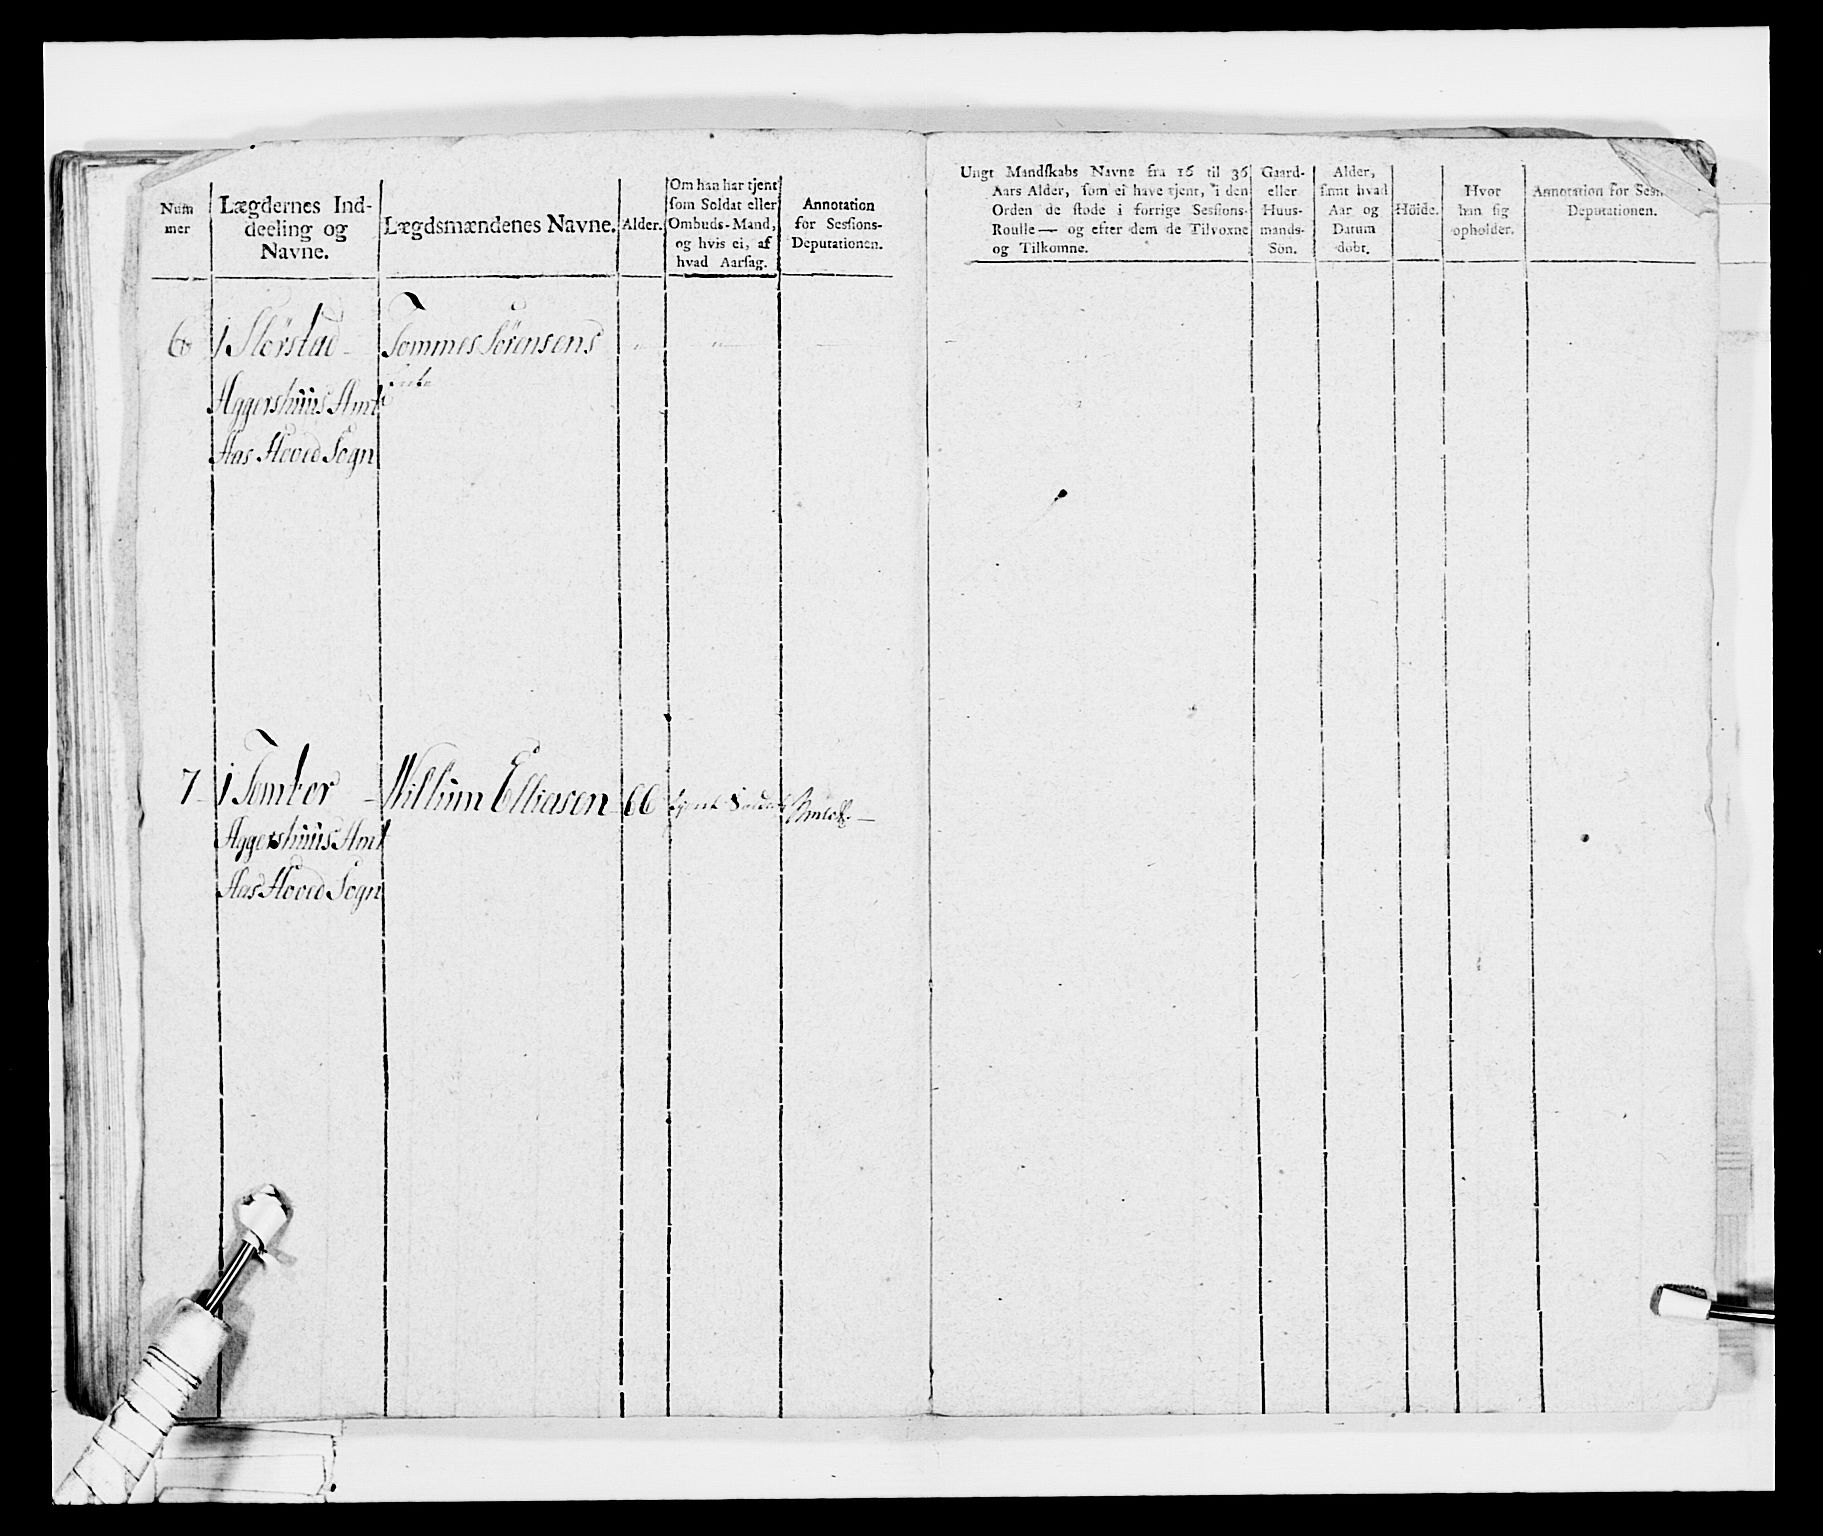 Num
mer
Lægdernes Ind-
deeling og
Navne.
Lægdsmændenes Navne.
Alder.
Om han har tjent
som Soldat eller
Ombuds-Mand,
og hvis ei, af
hvad Aarsag.
Annotation
for Sessions-
Deputationen.
Ungt Mandskabs Navne fra 16 til 36
Aars Alder, som ei have tjent, i den
Orden de stode i forrige Sessions-
Roulle — og efter dem de Tilvoxne
og Tilkomne.
Gaard-
eller
Huus-
mands-
Søn.
Alder,
samt hvad
Aar og
Datum
døbt.
Höide.
Hvor
han sig
opholder.
Annotation for Sess
Deputationen.
6 1 Storstad - Tommes Sörensens
Enke
Aggershuus Amt
Aas Hoved Sogn
7 - 1 Tomter - Willum Elliasen 66 tjent Soldat
Aggershuus Amt
Aas Hoved Sogn